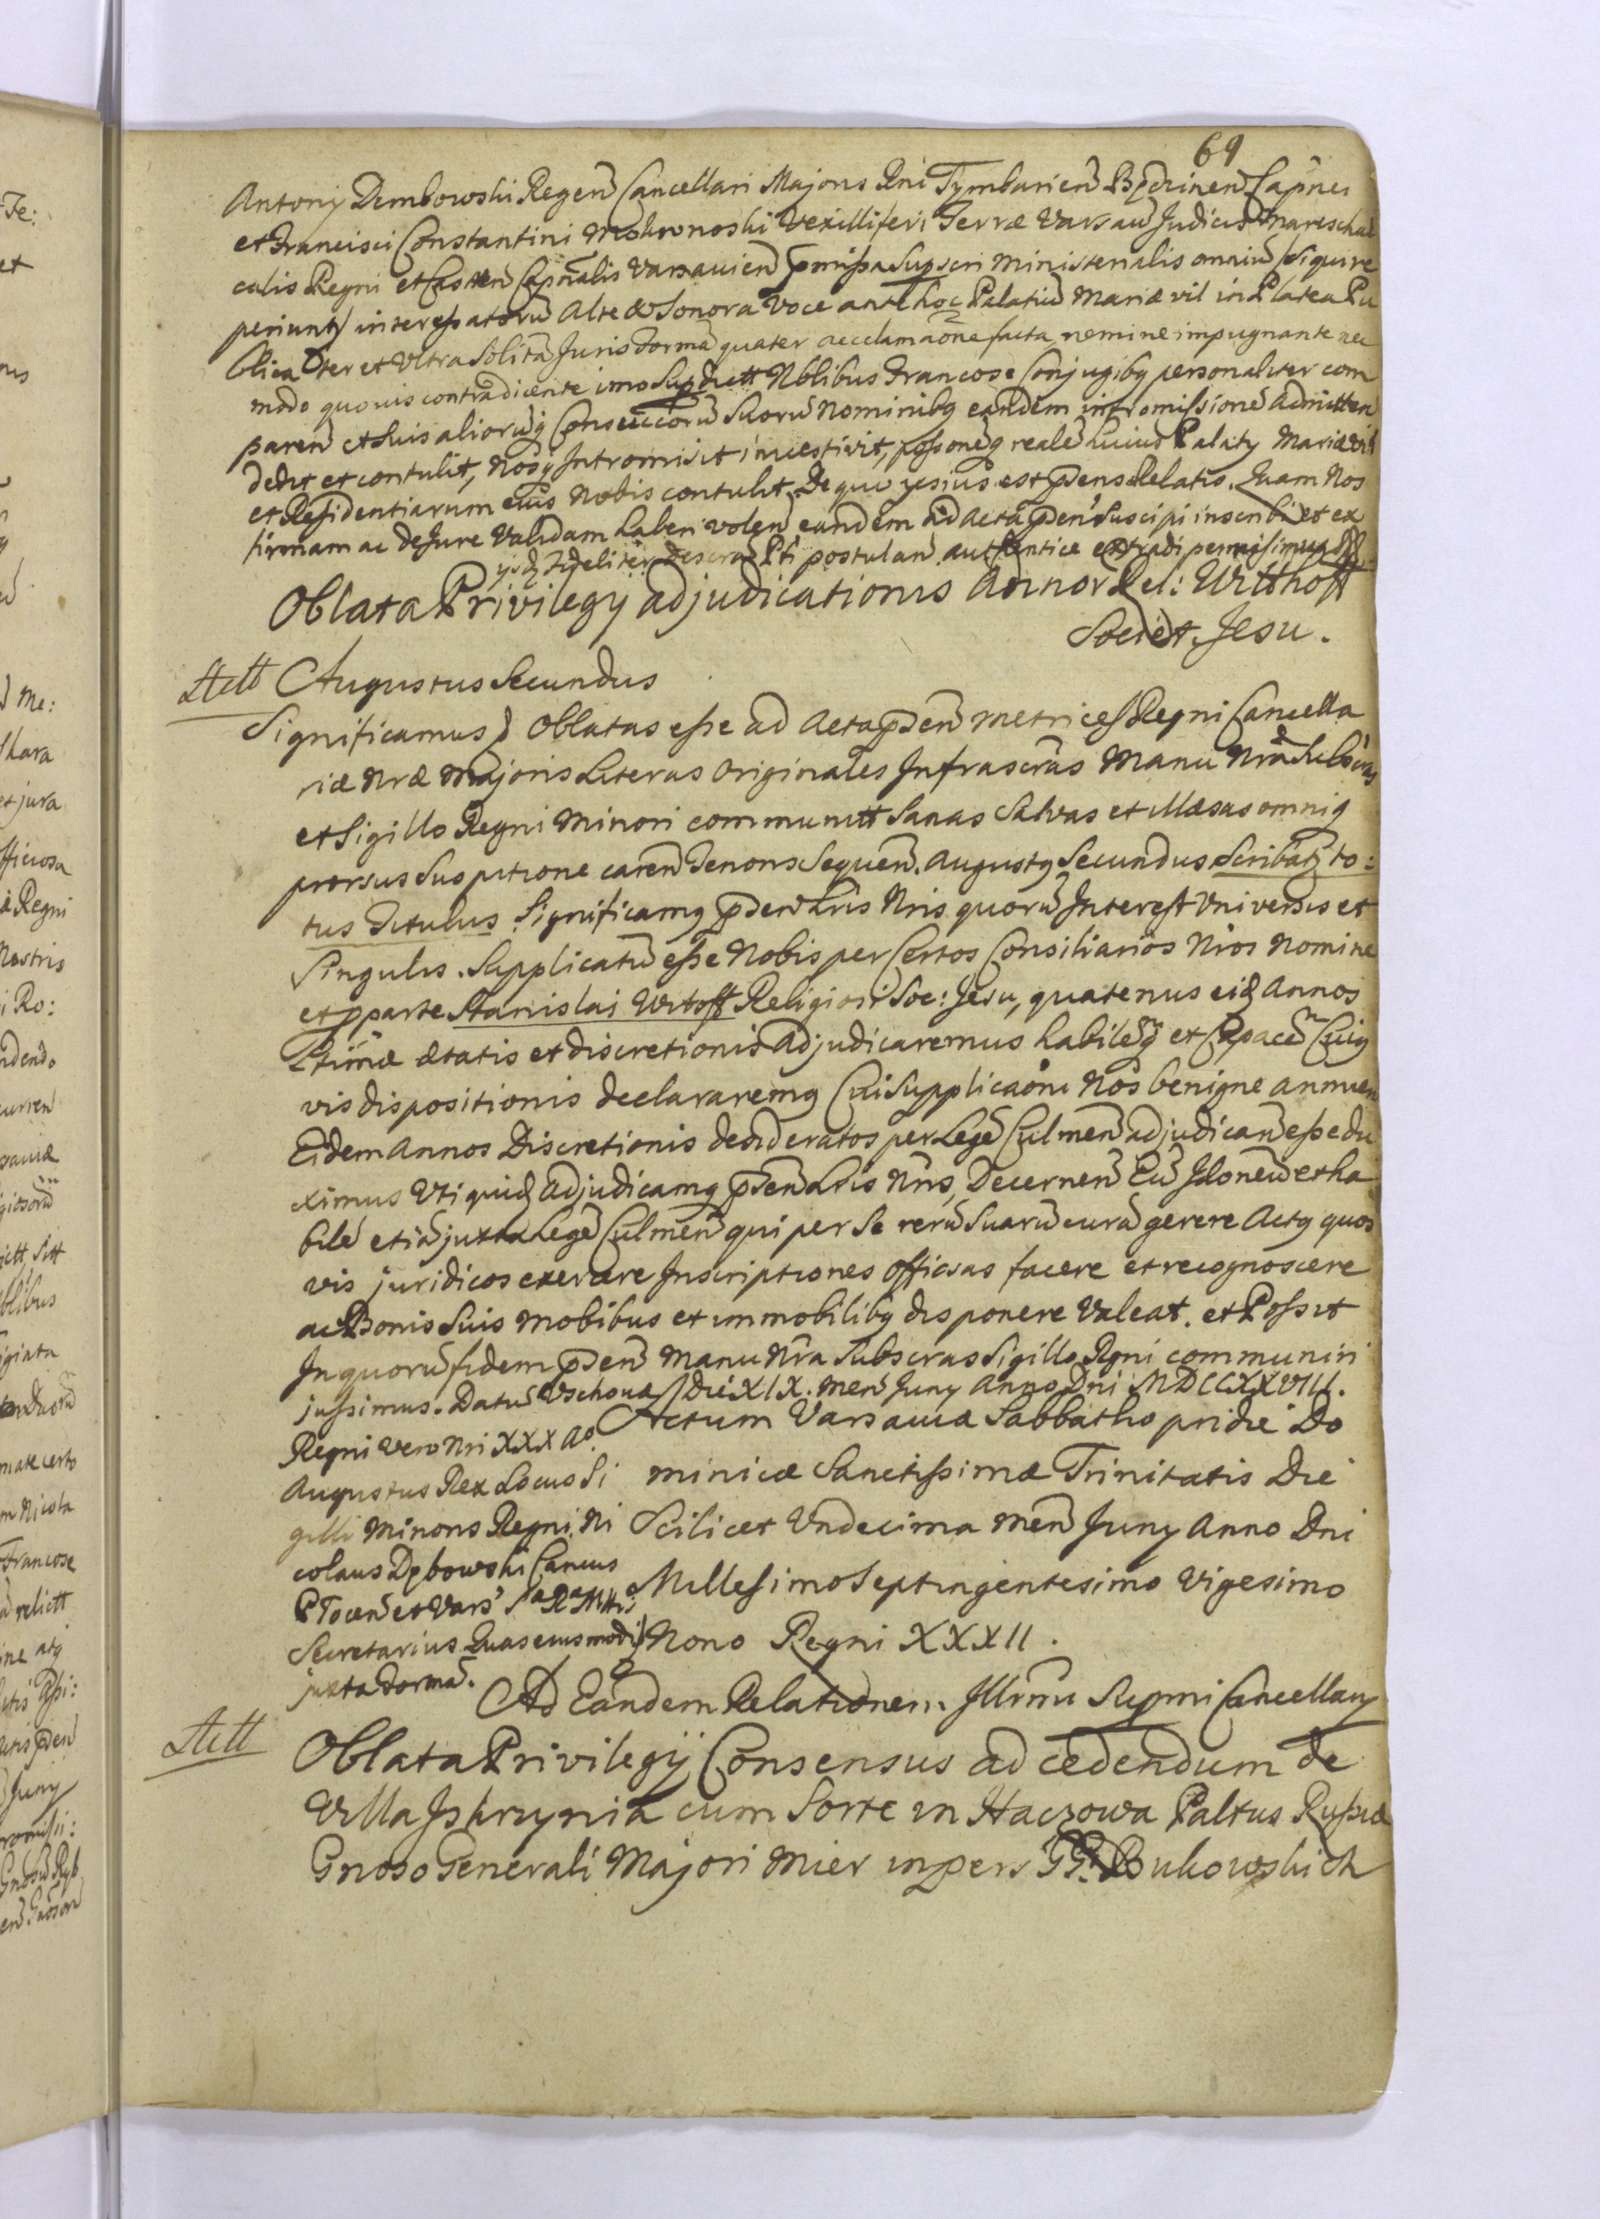 69
Antonÿ Dembowski Regen Cancellari Majoris Rni Tymbarien Capnei
et Francisci Constantini Vexilliferi Terræ Varsav Judicis mareschal
calis Regni et Castren Capnalis Varsavien pmissa Supscri ministerialis omniu si qui re
periunt interessatoru Alte & Sonora Voce ante hoc Palatiu Mariævil in Platea Pu
blica ter et Ultra Solita Juris forma quater acclamaone facta nemine impugnante nec
modo quovis contradicente imo Nblibus Francose Conjugibq personaliter com
paren et suis alioruq Consuccoru Suoru Nominibq eandem intromissione Admitten
dedit et contulit, Nosq Intromisit investivit, possoneq reale huius Palatÿ Mariævil
et Residentiarum eius Nobis contulit De quo est pdens Relatio. Quam Nos
firmam ac de Jure Validam haberi volen eandem ad Acta pden suscipi inscribi et ex
fideliter Pti postulan authentice extradi permisimus
Oblata Privilegÿ adjudicationis Annor Rel: Witthoff
Societ Jesu.
Augustus Secundus
Significamus Oblatas esse ad Acta pden metrices Regni Cancella
riæ Nræ Majoris Literas Originales Infrascras Manu Nra Subscras
et Sigillo Regni Minori communitt Sanas Salvas et illæsas omniq
prorsus Suspitione caren Tenoris Sequen. Augustq Secundus Scribatr to:
tus Titulus Significamq pden Lris Nris quoru Interest Universis et
Singulis. Supplicatu esse Nobis per Certos Consiliarios Nros Nomine
et pparte Stanislai Witoff Religiosi Soc: Jesu, quatenus eid Annos
Ltimæ ætatis et discretionis Adjudicaremus habileq et Capace Cuiq
vis dispositionis declararemq Cui Supplicaoni Nos benigne annuen
Eidem Annos Discretionis desideratos per Lege Culmen adjudican esse du
ximus Uti quid Adjudicamq pden Lris Nris Decernen Eu Idoneu et ha
bile etia juxta Lege Culmen qui per Se reru Suaru cura gerere Actq quos
vis juridicos exercere Inscriptiones Officsas facere et recognoscere
ac Bonis Suis Mobibus et immobilibq disponere Valeat. et Possit
In quoru fidem pden Manu Nra Subscras Sigillo Rgni communiri
jussimus. Datu Vschovæ Die XIX. Men Junÿ Anno Dni MDCCXXVIII.
Regni Vero Nri XXX Ao.
Augustus Rex Locus Si
gilli Minoris Regni Ni
colaus Dębowski Cancus
Plocen et Vars S R Mttis
Secretarius Quas eiusmodi
juxta Forma.
Actum Varsaviæ Sabbatho pridie Do
minicæ Sanctissimæ Trinitatis Die
Scilicet Undecima Men Junÿ Anno Dni
Millesimo Septingentesimo Vigesimo
Nono Regni XXXII.
Ad Eandem Relationem Illrmi Supmi Cancellarÿ
Oblata Privilegÿ Consensus ad cedendum de
Villa Iskrzynia cum Sorte in Haczowa Paltus Russiæ
Gnoso Generali Majori Mier in pers GG. Bukowskich